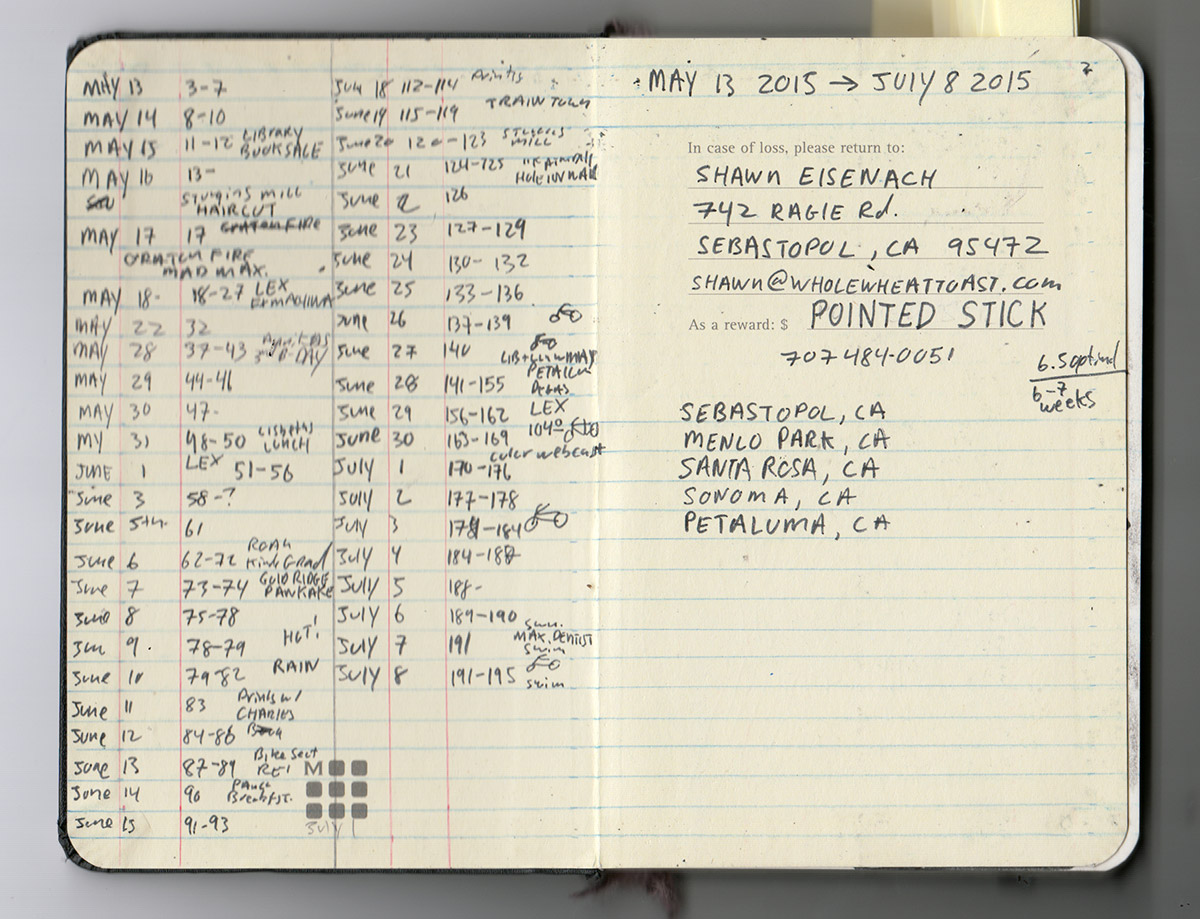 MAY 13 3-7
MAY 14 8-10
MAY 15 11-12 LIBRARY
BOOKSALE
MAY 16 13-
STURGINS MILL
HAIRCUT
MAY 17 17 GRATON FIRE
GRATON FIRE
MAD MAX.
MAY 18- 18-27 LEX
EXMACHINA
MAY 22 32
MAY 28 37-43
MAY 29 44-46
MAY 30 47-
MY 31 48-50 LISBETHS
LUNCH
JUNE 1 LEX 51-56
June 3 58-?
June 5th. 61
June 6 62-72 ROAM
King Grad
June 7 73-74 GOLD RIDGE
PANKAKE
June 8 75-78
Jun 9. 78-79 HOT!
June 10 79-82 RAIN
June 11 83 Drinks w/
CHARLES
June 12 84-86
June 13 87-89 Bike Seat
REI
June 14 90 Pancake
Breakfst.
June 15 91-93
M
July 1
Jun 18 112-114 Drinks
June 19 115-119 TRAIN TOWN
June 20 120-123 STURGIS
MILL
June 21 124-125
HOLE IN WALL
June 22 126
June 23 127-129
June 24 130-132
June 25 133-136
June 26 137-139
June 27 140
June 28 141-155 PETALUM
June 29 156-162 LEX
June 30 163-169 104°
color webcast
July 1 170-176
July 2 177-178
July 3 178-184
July 4 184-188
July 5 188-
July 6 189-190 Swim.
July 7 191 MAX. DENTIST
Swim
July 8 191-195
swim
MAY 13 2015 → JULY 8 2015
2
In case of loss, please return to:
SHAWN EISENACH
742 RAGLE Rd.
SEBASTOPOL, CA 95472
SHAWN@WHOLEWHEATTOAST.com
As a reward: $ POINTED STICK
707 484-0051
6-7
weeks
SEBASTOPOL, CA
MENLO PARK, CA
SANTA ROSA, CA
SONOMA, CA
PETALUMA, CA